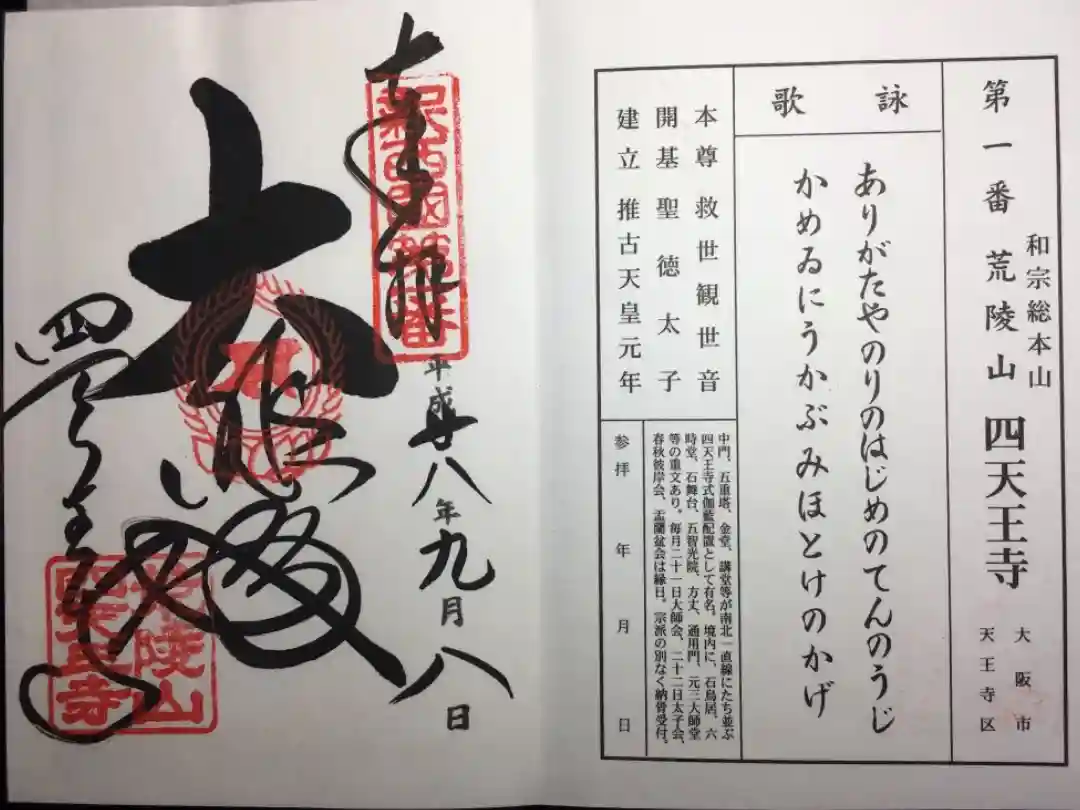 和宗総本山
第一番 荒陵山 四天王寺
大阪市
天王寺区
詠歌
ありがたやのりのはじめのてんのうじ
かめゐにうかぶみほとけのかげ
本尊 救世観世音
開基 聖徳太子
建立 推古天皇元年
中門、五重塔、金堂、講堂等が南北一直線にたち並ぶ
四天王寺式伽藍配置として有名。境内に、石鳥居、六
時堂、石舞台、五智光院、方丈、通用門、元三大師堂
等の重文あり。毎月二十一日大師会、二十二日太子会、
春秋彼岸会、盂蘭盆会は縁日。宗派の別なく納骨受付。
参拝 年 月 日
奉拝
平成廿八年九月八日
大悲殿
四天王寺
荒陵山
四天王寺